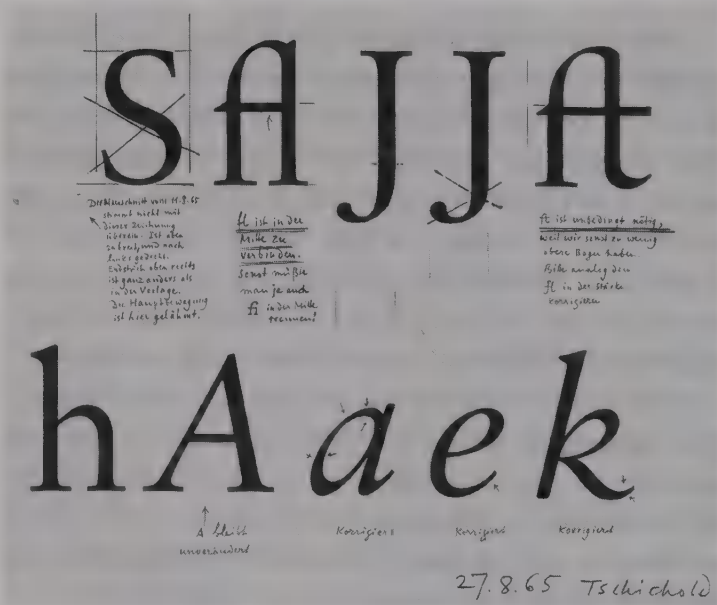 S fl J J ft
Der Neuschnitt vom 11.8.65
stimmt nicht mit
dieser Zeichnung
überein. Ist oben
zu breit, und nach
links gedreht.
Endstrich oben rechts
ist ganz anders als
in der Vorlage.
Die Hauptbewegung
ist hier gelähmt.
fl ist in der
Mitte zu
verbinden.
Sonst müßte
man ja auch
fi in der Mitte
trennen!
ft ist unbedingt nötig,
weil wir sonst zu wenig
obere Bogen haben.
Bitte analog dem
fl in der Stärke
korrigieren
h A a e k
A bleibt
unverändert
Korrigiert
Korrigiert
Korrigiert
27.8.65 Tschichold